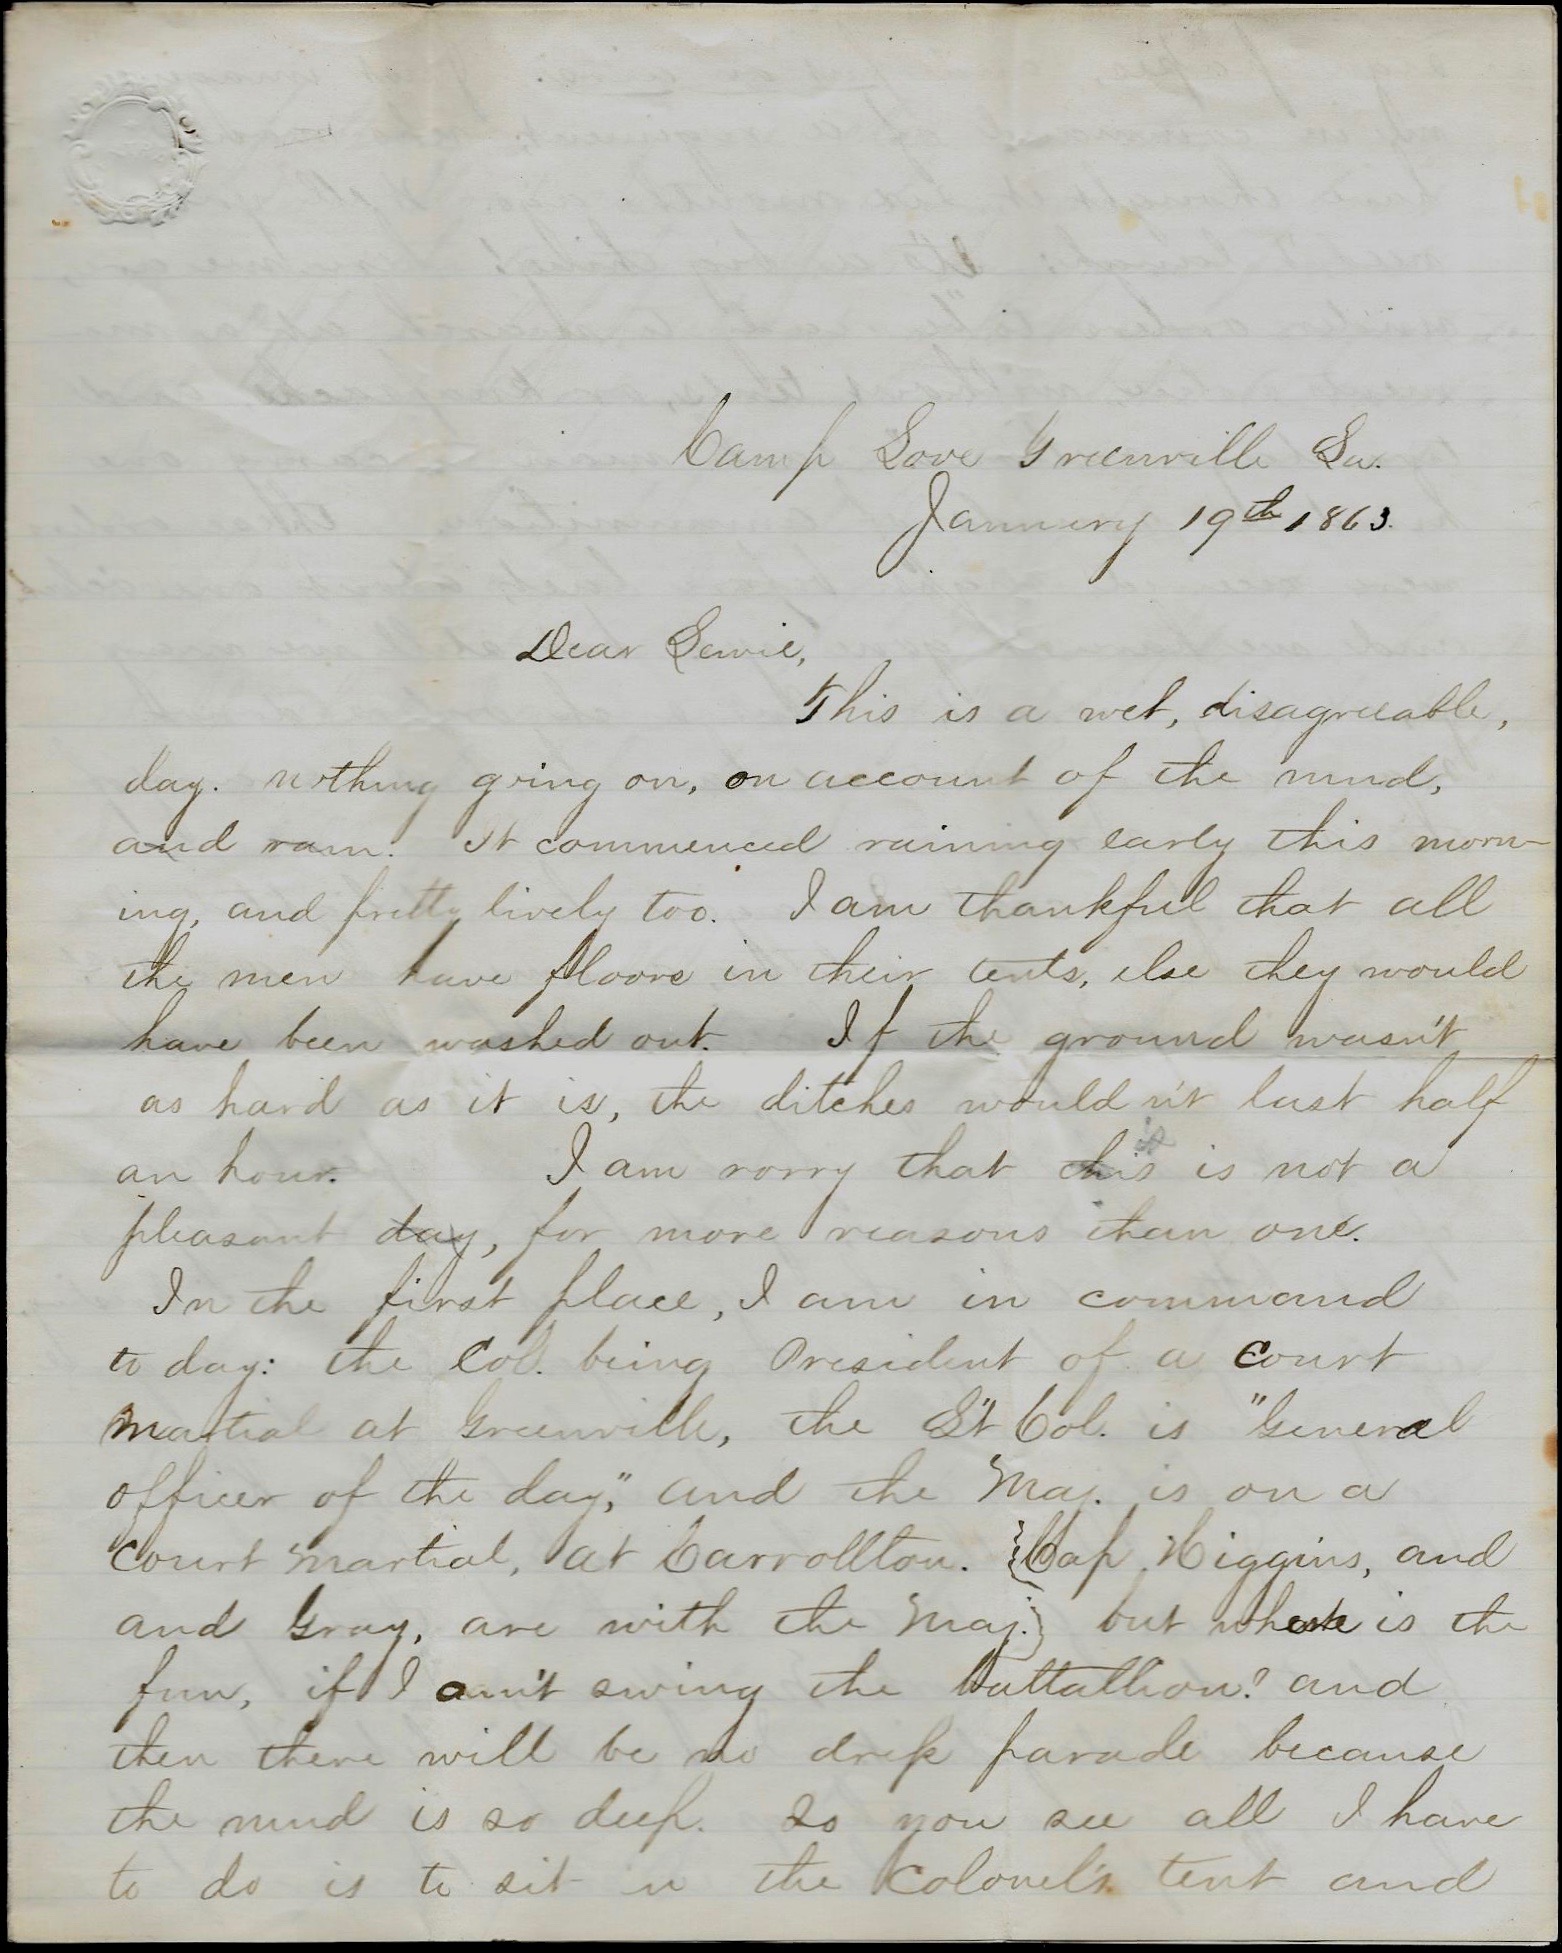 Camp Love Greenville La.
January 19th 1863.
Dear Lewie,
This is a wet, disagreeable,
day. nothing going on, on account of the mud,
and rain. It commenced raining early this morn-
ing, and pretty lively too. I am thankful that all
the men have floors in their tents, else they would
have been washed out. If the ground wasn't
as hard as it is, the ditches would n't last half
an hour. I am sorry that this it is not a
pleasant day, for more reasons than one.
In the first place, I am in command
to day: the Col. being President of a Court
Martial at Greenville, the Lt Col. is "General
officer of the day," and the Maj. is on a
Court Martial, at Carrollton. {Cap Higgins, and
and Gray, are with the Maj.} but where is the
fun, if I can't swing the battallion? and
then there will be no dress parade because
the mud is so deep. So you see all I have
to do is to sit in the Colonel's tent and